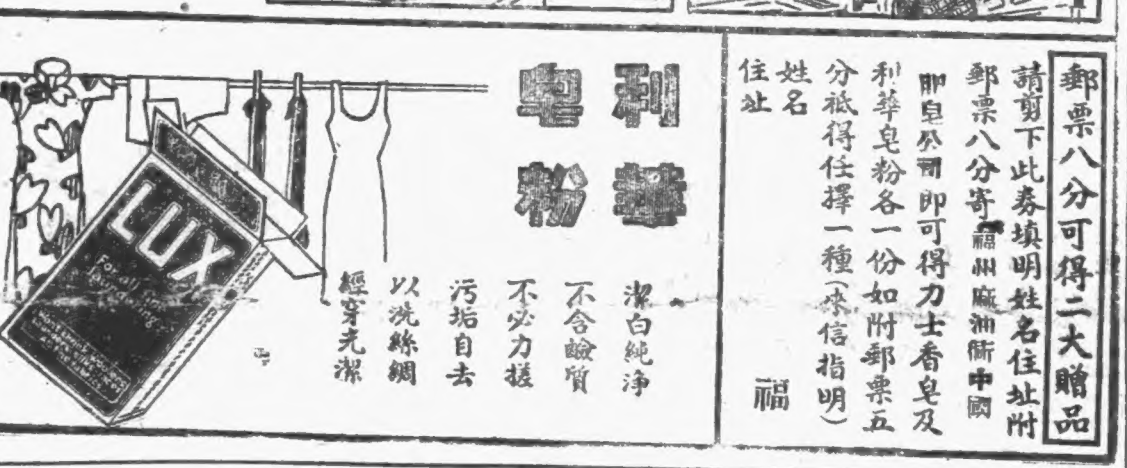 郵票八分可得二大贈品
請剪下此劵填明姓名住址附
郵票八分寄福州麻油街中國
皂公司即可得力士香皂及
利華皂粉各一份如附郵票五
分祇得任擇一種(來信指明)
姓名
住址
福
利華
皂粉
潔白純淨
不含鹼質
不必力搓
污垢自去
以洗絲綢
經穿光潔
LUX
For all fine
laundering